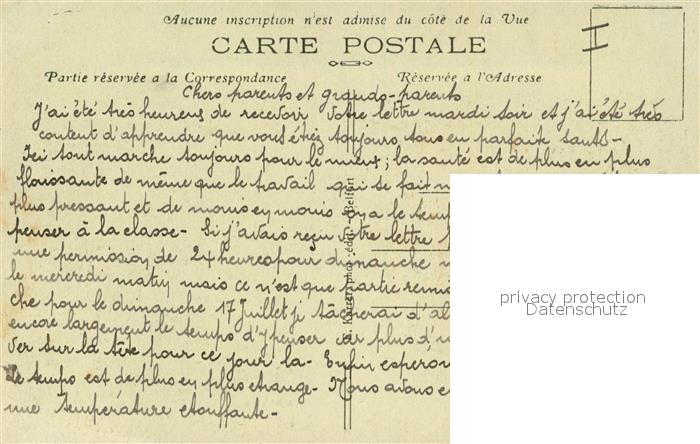 Aucune inscription n'est admise du côté de la Vue
CARTE POSTALE
Partie réservée a la Correspondance
Réservée a l'Adresse
II
Chers parents et grands-parents
J'ai été très heureux de recevoir votre lettre mardi soir et j'ai été très
content d'apprendre que vous étiez toujours tous en parfaite santé-
Ici tout marche toujours pour le mieux; la santé est de plus en plus
florissante de même que le travail qui se fait
plus pressant et de moins en moins on a le temps
penser à la classe- Si j'avais reçu votre lettre
une permission de 24 heures pour dimanche
le mercredi matin mais ce n'est que partie remise
che pour le dimanche 17 Juillet je tâcherai d'al
encore largement le temps d'y penser car plus d'u
ver sur la tête pour ce jour la- Enfin espérons
Le temps est de plus en plus étrange- Nous avons e
une température étouffante-
phot. édit. Belfort
privacy protection
Datenschutz